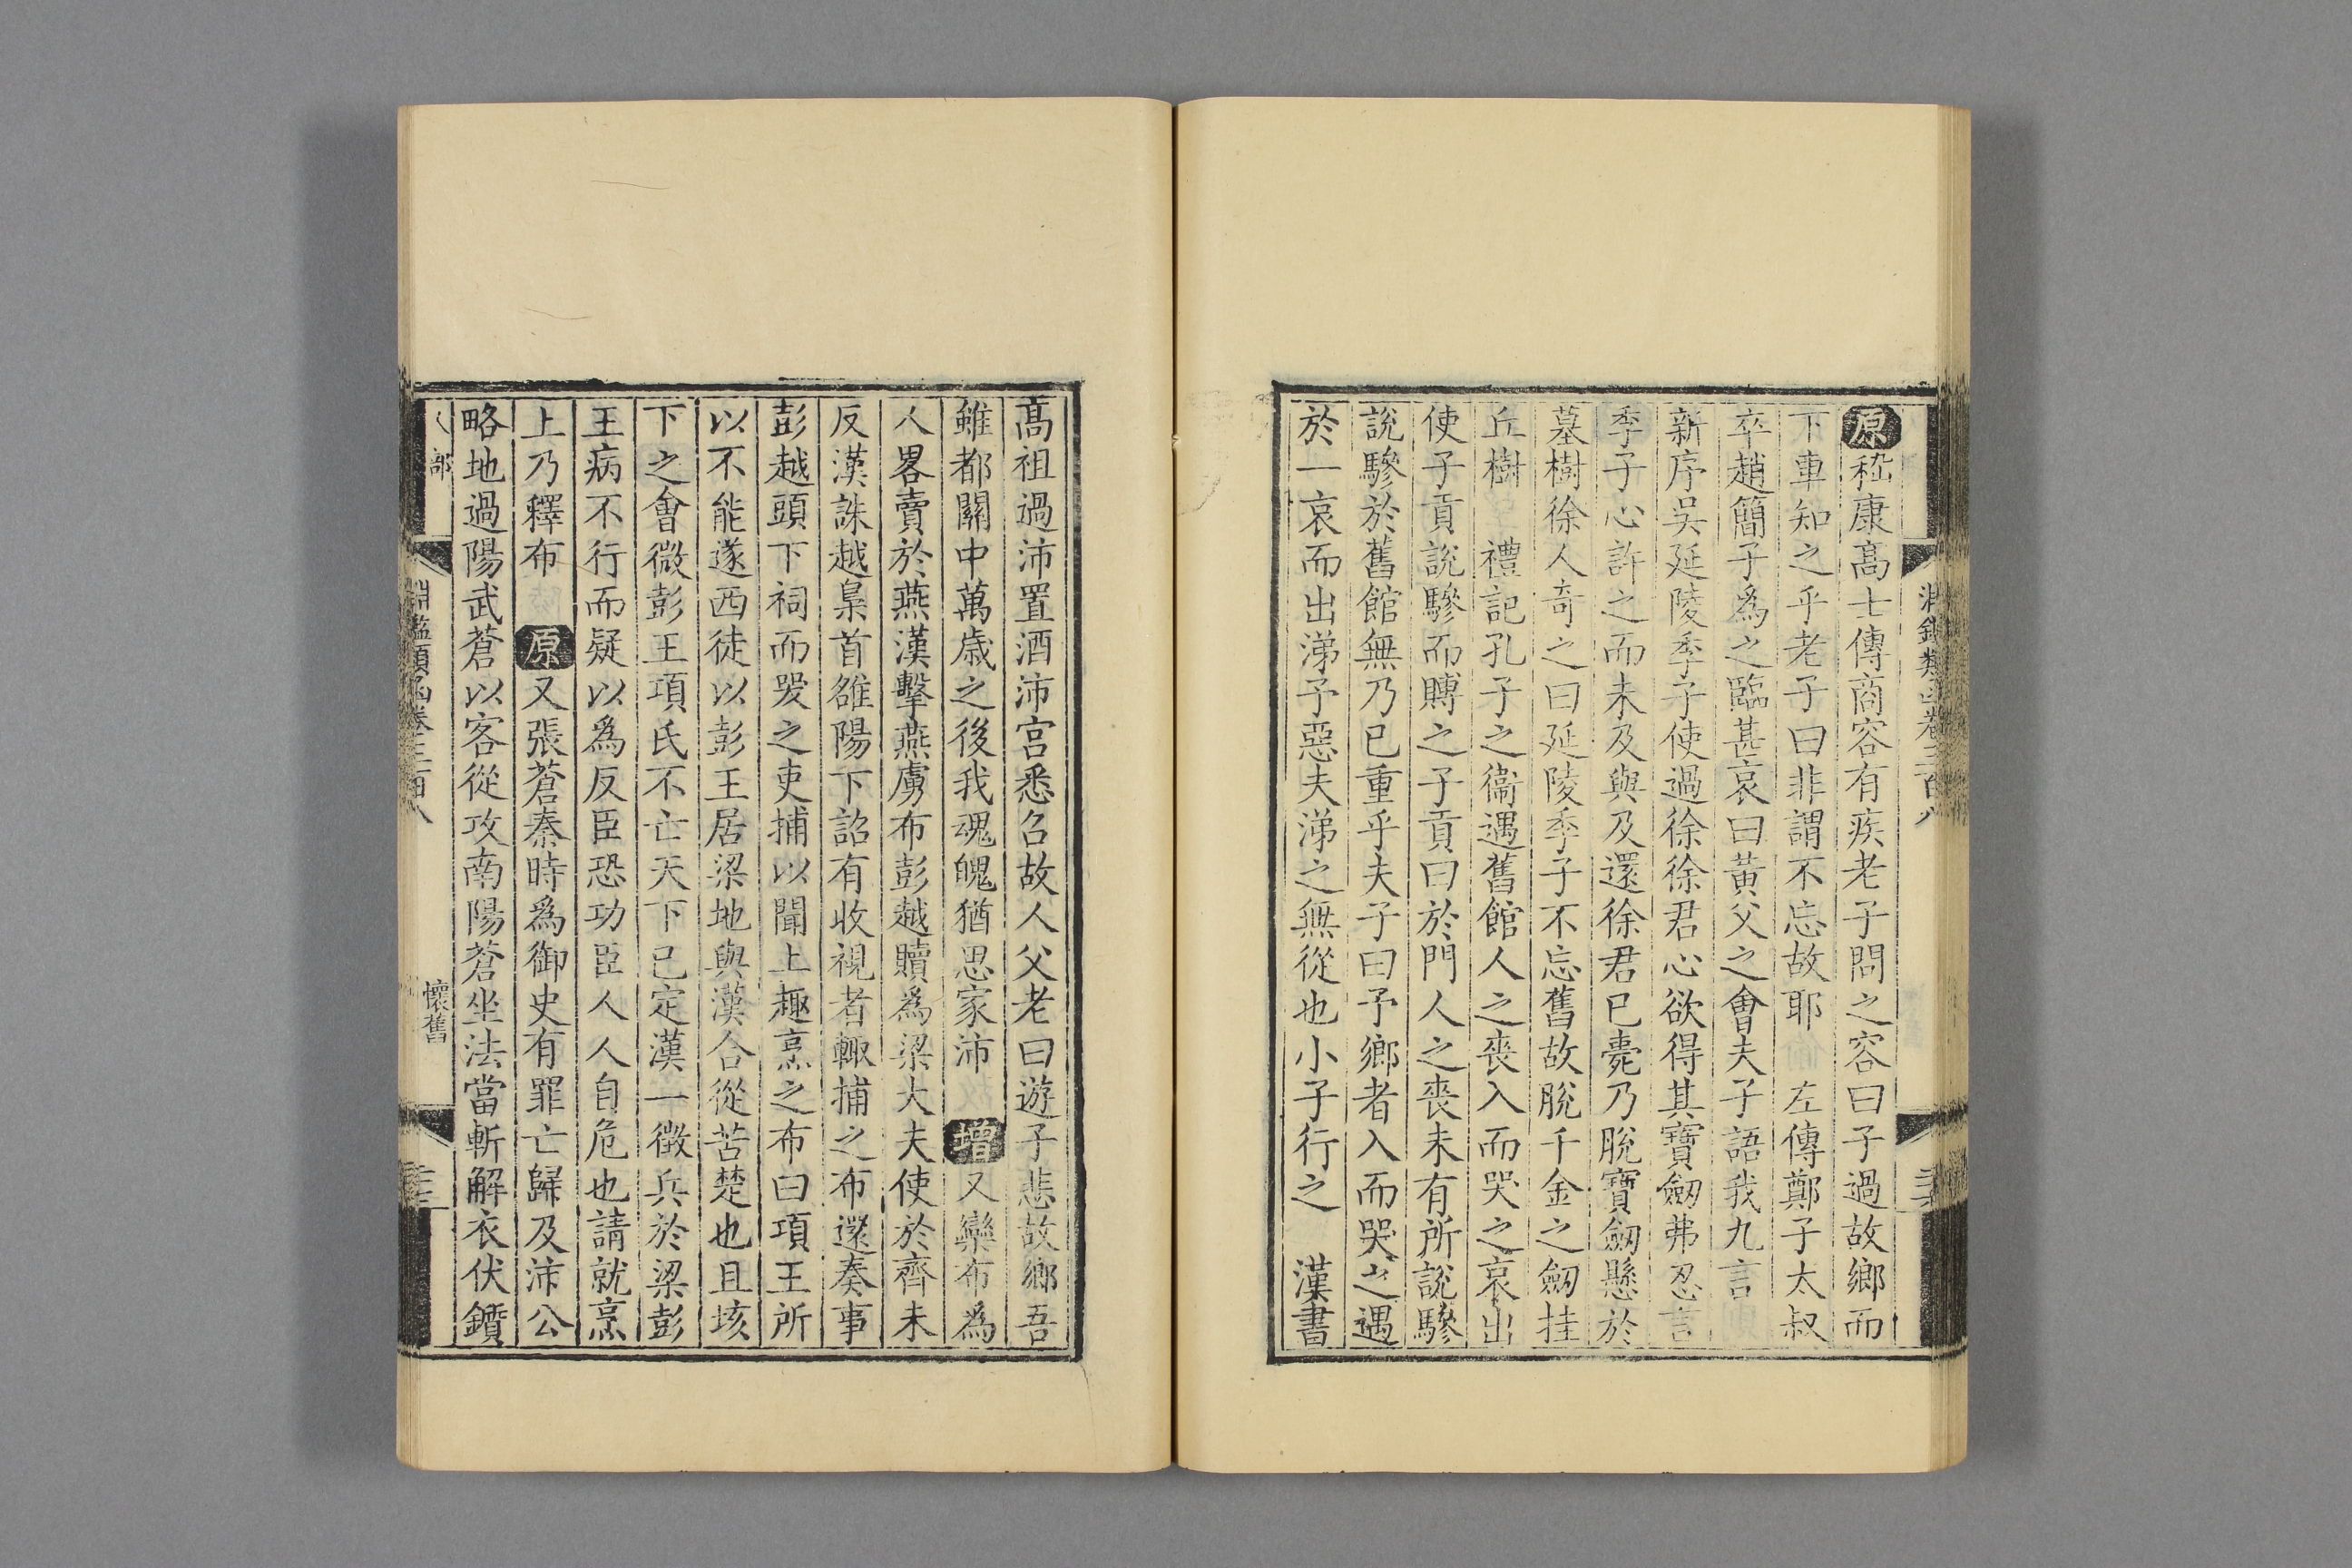 原嵇康高士傳商容有疾老子問之容曰子過故鄉而
下車知之乎老子曰非謂不忘故耶 左傳鄭子太叔
卒趙簡子為之臨甚哀曰黃父之會夫子語我九言
新序吳延陵季子使過徐徐君心欲得其寶劒弗忍言
季子心許之而未及與及還徐君已薨乃脫寶劒懸於
墓樹徐人奇之曰延陵季子不忘舊故脫千金之劒挂
丘樹 禮記孔子之衞遇舊館人之喪入而哭之哀出
使子貢說驂而賻之子貢曰於門人之喪未有所說驂
說驂於舊館無乃已重乎夫子曰予鄉者入而哭之遇
於一哀而出涕予惡夫涕之無從也小子行之 漢書
高祖過沛置酒沛宮悉召故人父老曰遊子悲故鄉吾
雖都關中萬歲之後我魂魄猶思家沛 增又欒布為
人畧賣於燕漢擊燕虜布彭越贖為梁大夫使於齊未
反漢誅越梟首雒陽下詔有收視者輙捕之布還奏事
彭越頭下祠而哭之吏捕以聞上趣烹之布曰項王所
以不能遂西徒以彭王居梁地與漢合從苦楚也且垓
下之會微彭王項氏不亡天下已定漢一徵兵於梁彭
王病不行而疑以為反臣恐功臣人人自危也請就烹
上乃釋布 原又張蒼秦時為御史有罪亡歸及沛公
略地過陽武蒼以客從攻南陽蒼坐法當斬解衣伏鑕
人部
淵鑑類函卷三百八
懷舊